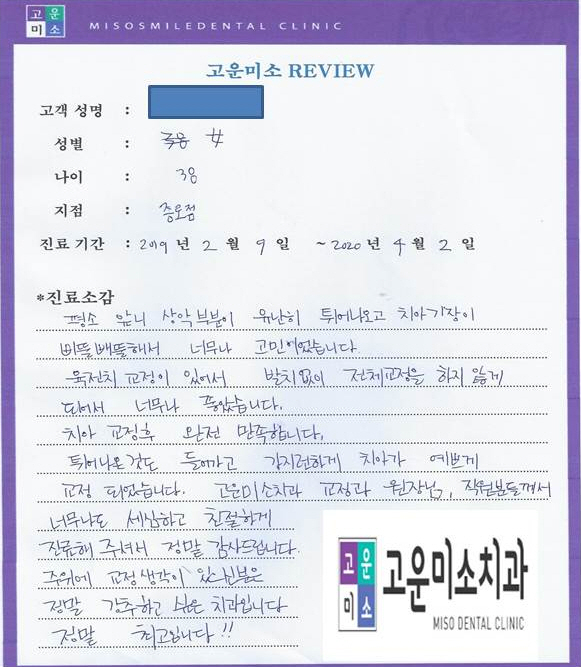 고운
미소
MISOSMILEDENTAL CLINIC
고운미소 REVIEW
고객 성명 :
성별 : 女
나이 : 38
지점 : 종로점
진료 기간 : 2019 년 2 월 9 일 ~ 2020 년 4 월 2 일
*진료소감
평소 앞니 상악부분이 유난히 튀어나오고 치아기장이
삐뚤빼뚤해서 너무나 고민이었습니다
육전치 교정이 있어서 발치없이 전체교정을 하지 않게
되어서 너무나 좋았습니다.
치아 교정후 완전 만족합니다.
튀어나온것도 들어가고 가지런하게 치아가 예쁘게
교정 되었습니다. 고운미소치과 교정과 원장님, 직원분들께서
너무나도 세심하고 친절하게
진료해 주셔서 정말 감사드립니다.
주위에 교정생각이 있으신분은
정말 강추하고 싶은 치과입니다
정말 최고입니다!!
고운
미소
고운미소치과
MISO DENTAL CLINIC